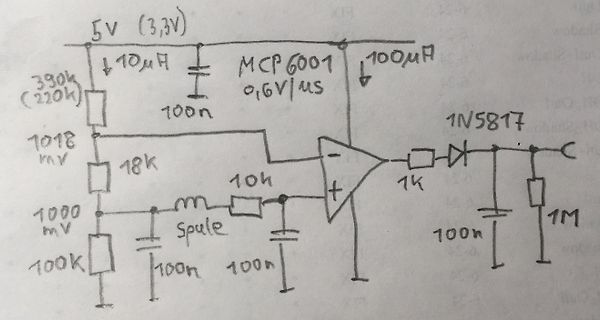 5V (3,3V)
10µA
MCP6001
0,6V/µs
100µA
390k
(220k)
100n
1018
mV
1N5817
18k
10k
1k
1000
mV
Spule
100k
100n
100n
100n
1M
-
+